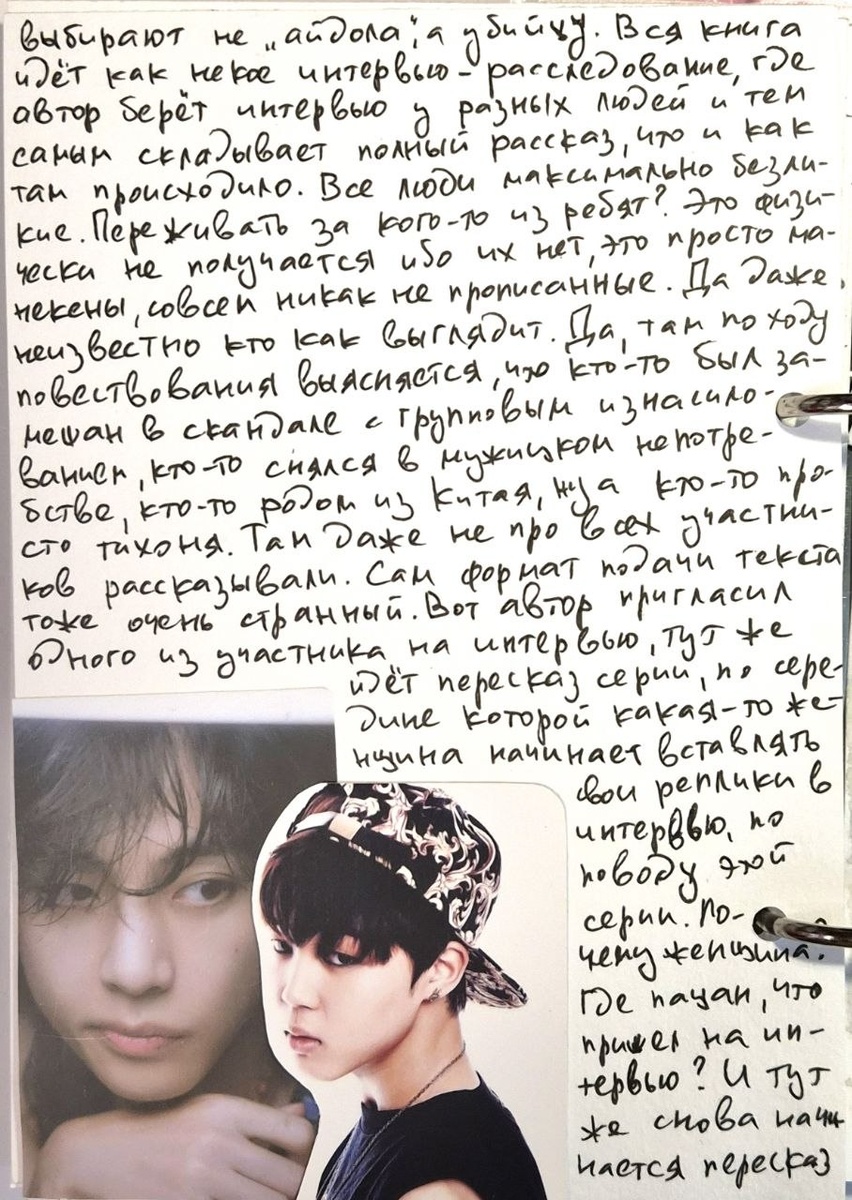 выбирают не „айдола“, а убийцу. Вся книга
идёт как некое интервью-расследование, где
автор берёт интервью у разных людей и тем
самым складывает полный рассказ, что и как
там происходило. Все люди максимально безли-
кие. Переживать за кого-то из ребят? Это физи-
чески не получается ибо их нет, это просто ма-
некены, совсем никак не прописанные. Да даже
неизвестно кто как выглядит. Да, там по ходу
повествования выясняется, что кто-то был за-
мешан в скандале с групповым изнасило-
ванием, кто-то снялся в мужицком непотре-
бстве, кто-то родом из Китая, ну а кто-то про-
сто тихоня. Там даже не про всех участни-
ков рассказывали. Сам формат подачи текста
тоже очень странный. Вот автор пригласил
одного из участника на интервью, тут же
идёт пересказ серии, по сере-
дине которой какая-то же-
нщина начинает вставлять
свои реплики в
интервью, по
поводу этой
серии. По-
чему женщина.
Где пацан, что
пришел на ин-
тервью? И тут
же снова начи
нается пересказ